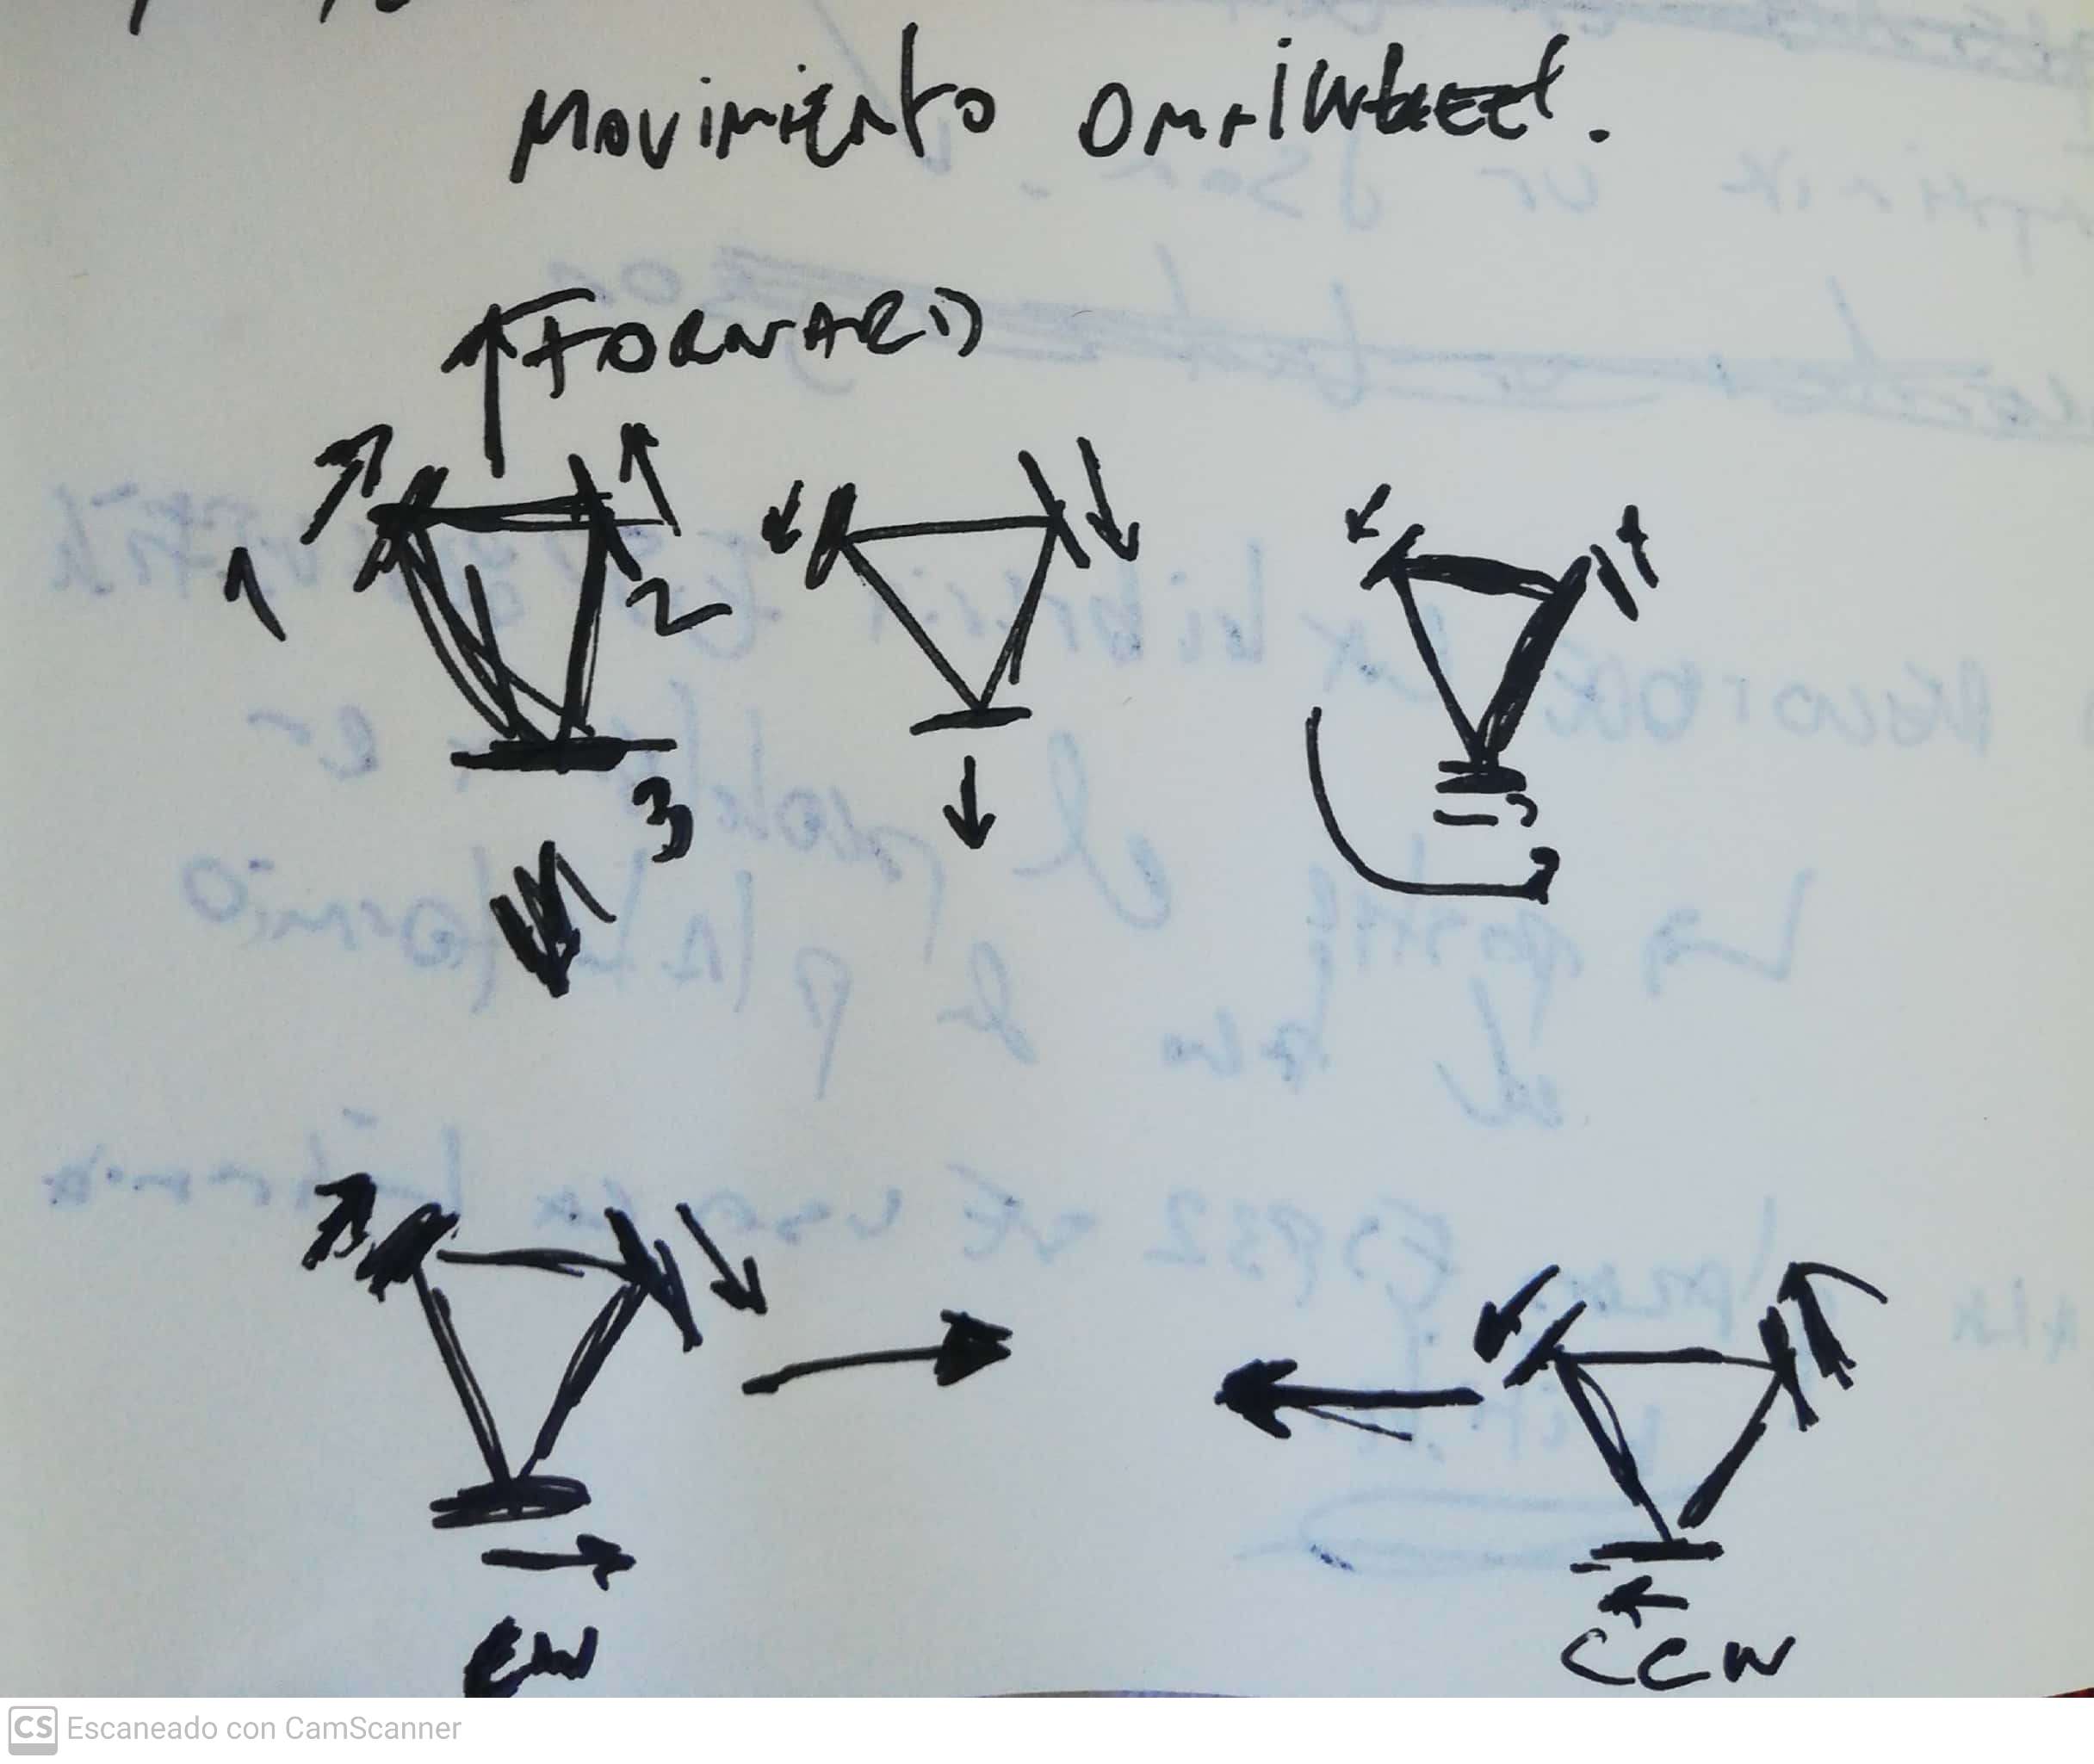 Movimiento Omniwheel.
FORWARD
1
2
3
CW
CCW
CS Escaneado con CamScanner